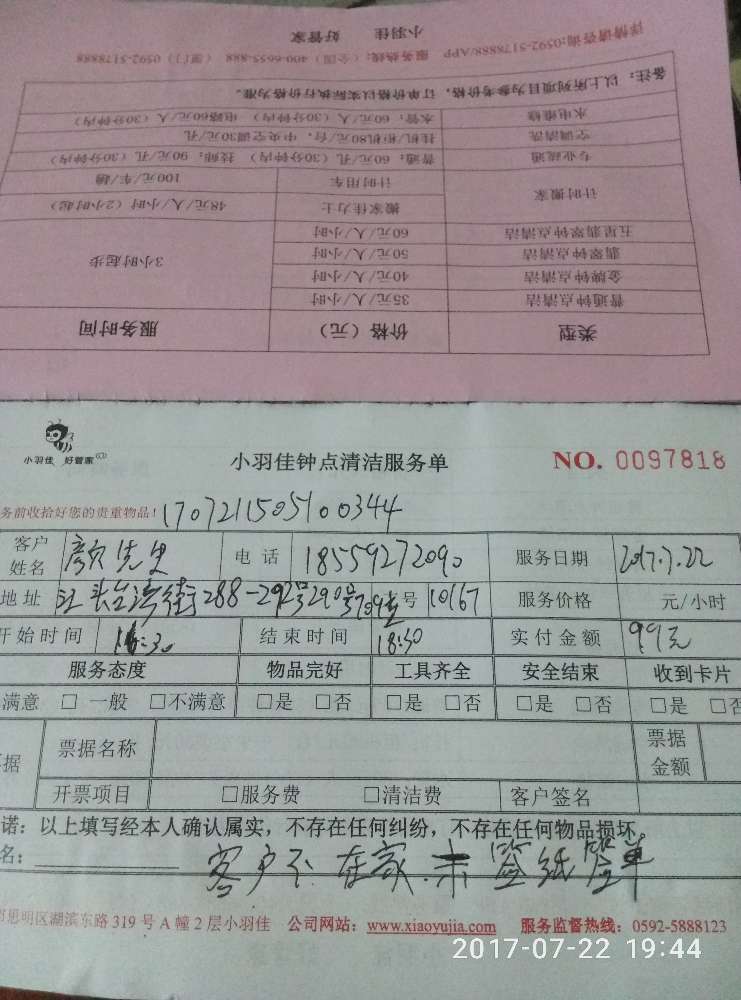 详情请咨询:0592-5178888/APP
小羽佳 好管家
服务热线:(全国)400-6655-888 (厦门)0592-5178888
类型 价格(元) 服务时间
普通钟点清洁 35元/人/小时
金牌钟点清洁 40元/人/小时
翡翠钟点清洁 50元/人/小时
五星翡翠钟点清洁 60元/人/小时
3小时起步
计时搬家 搬家佳力士 48元/人/小时(2小时起)
计时用车 100元/车/趟
专业疏通 普通:60元/孔(30分钟内) 技师:90元/孔(30分钟内)
空调清洗 挂机/柜机80元/台,中央空调30元/孔
水电维修 水管:60元/人(30分钟内) 电路60元/人(30分钟内)
备注:以上所列项目为参考价格,订单价格以实际执行价格为准。
小羽佳 好管家
小羽佳钟点清洁服务单
NO. 0097818
务前收拾好您的贵重物品! 1707211505100344
客户姓名 颜先生 电话 18559272090 服务日期 2017.7.22
地址 江头台湾街288-292号290号709室号 10167 服务价格 元/小时
开始时间 :30 结束时间 18:30 实付金额 99元
服务态度 物品完好 工具齐全 安全结束 收到卡片
满意 □一般 □不满意 □是 □否 □是 □否 □是 □否 □是 □否
据 票据名称 票据金额
开票项目 □服务费 □清洁费 客户签名
诺:以上填写经本人确认属实,不存在任何纠纷,不存在任何物品损坏。
名:
客户不在家.未签纸签单
思明区湖滨东路319号A幢2层小羽佳 公司网站:www.xiaoyujia.com 服务监督热线:0592-5888123
2017-07-22 19:44